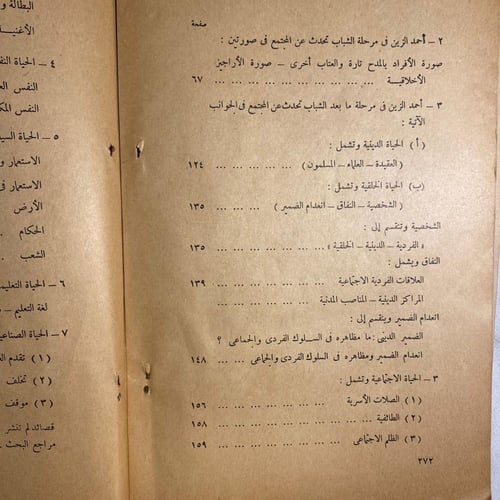 صفحة
٢ – أحمد الزين فى مرحلة الشباب تحدث عن المجتمع فى صورتين :
صورة الأفراد بالمدح تارة والعتاب أخرى – صورة الأراجيز
الأخلاقية ... ... ... ... ... ... ... ... ٦٧
٣ – أحمد الزين فى مرحلة ما بعد الشباب تحدث عن المجتمع فى الجوانب
الآتية :
( أ ) الحياة الدينية وتشمل :
( العقيدة – العلماء – المسلمون ) ... ... ... ... ١٢٤
(ب) الحياة الخلقية وتشمل :
( الشخصية – النفاق – انعدام الضمير ) ... ... ... ١٣٥
الشخصية وتنقسم إلى :
« الفردية – الدينية – الخلقية » ... ... ... ... ... ... ١٣٥
النفاق ويشمل :
العلاقات الفردية الاجتماعية ... ... ... ... ... ١٣٩
المراكز الدينية – المناصب المدنية ... ... ... ...
انعدام الضمير وينقسم إلى :
الضمير الدينى : ما مظاهره فى السلوك الفردى والجماعى ؟
انعدام الضمير ومظاهره فى السلوك الفردى والجماعى ... ... ١٤٨
٣ – الحياة الاجتماعية وتشمل :
(١) الصلات الأسرية ... ... ... ... ... ... ١٥٦
(٢) الطائفية ... ... ... ... ... ... ... ١٥٨
(٣) الظلم الاجتماعى ... ... ... ... ... ... ١٥٩
٢٧٢
البطالة و
٤ – الحياة النف
النفس الع
النفس المك
٥ – الحياة السي
الاستعمار و
الاستعمار فى
الأرض
الحكام .
الشعب
٦ – الحياة التعليم
لغة التعليم –
٧ – الحياة الصناع
(١) تقدم الع
(٢) تخلف
(٣) موقف
قصائد لم تنشر
مراجع البحث .